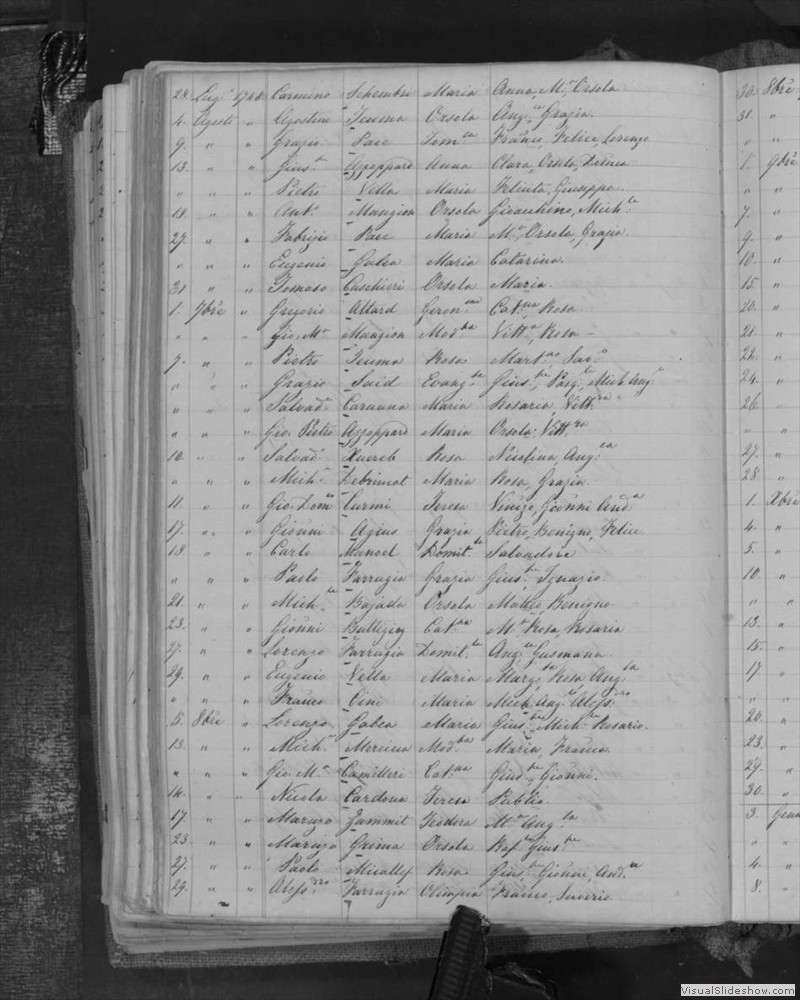 28. Lug.º 1748 Carmino Schembri Maria Anna, M.ª Orsola
4. Agosto " Agostino Teuma Orsola Ang.ca Grazia.
9. " " Grazio Pace Tom.sa Franco, Felice, Lorenzo
13. " " Gius.e Azzoppard Anna Clara, Orsola,
" " " Pietro Vella Maria Felicita, Giuseppa.
18. " " Ant.º Mangion Orsola Gioachino, Mich.le
27. " " Fabrizio Pace Maria M.ª Orsola, Grazia.
" " " Eugenio Galea Maria Catarina.
31 " " Tomaso Caschieri Orsola Maria.
1. 7bre " Gregorio Attard Geron.ma Cat.na Rosa
" " " Gio. M.ª Mangion Mod.ta Vitt.ª, Rosa
7. " " Pietro Teuma Rosa Mart.no Sav.º
" " " Grazio Said Evang.ta Gius.pe, Pasq.le Mich. Ang.º
" " " Salvad.e Caruana Maria Rosaria, Vitt.ra
" " " Gio. Pietro Azzoppard Maria Orsola, Vitt.ra
10. " " Salvad.e Xuereb Rosa Nicolina, Ang.ca
" " " Mich.e Debrincat Maria Rosa, Grazia.
11. " " Gio. Dom.co Curmi Teresa Gioanni And.a
17. " " Gioanni Agius Grazia Pietro, Benigno, Felice.
18. " " Carlo Manoel Domit.la Salvadore
" " " Paolo Farrugia Grazia Gius.pe Ignazio.
21. " " Mich.le Bajada Orsola Matteo, Benigno
23. " " Gioanni Buttigieg Cat.na M.ª Rosa, Rosaria
27. " " Lorenzo Farrugia Domit.la Ang.la Gusmana
29. " " Eugenio Vella Maria Marg.ta Rosa, Ang.la
" " " Franco Cini Maria Mich. Ang.lo Aless.dro
5. 8bre " Lorenzo Galea Maria Gius.pe Mich.le Rosario.
13. " " Mich.e Mercieca Mod.ta Maria, Franca.
" " " Gio. M.ª Camilleri Cat.na Gius.pe, Gioanni.
14. " " Nicola Cardona Teresa Publio.
17. " " Marizo Zammit Teodora M.ª Ang.la
23. " " Marizo Grima Orsola Raf.e Gius.pe
27. " " Paolo Micallef Rosa Gius.pe Gioanni, And.ea
29. " " Aless.dro Farrugia Olimpia Franco, Saverio.
30. 8bre
31. "
1. 9bre
" "
7. "
9. "
10. "
15. "
20. "
21. "
22. "
24. "
26. "
" "
27. "
28. "
1. Xbre
4. "
5. "
10. "
" "
13. "
15. "
17. "
" "
20. "
23. "
27. "
30. "
3. Genn
" "
4. "
8. "
VisualSlideshow.com